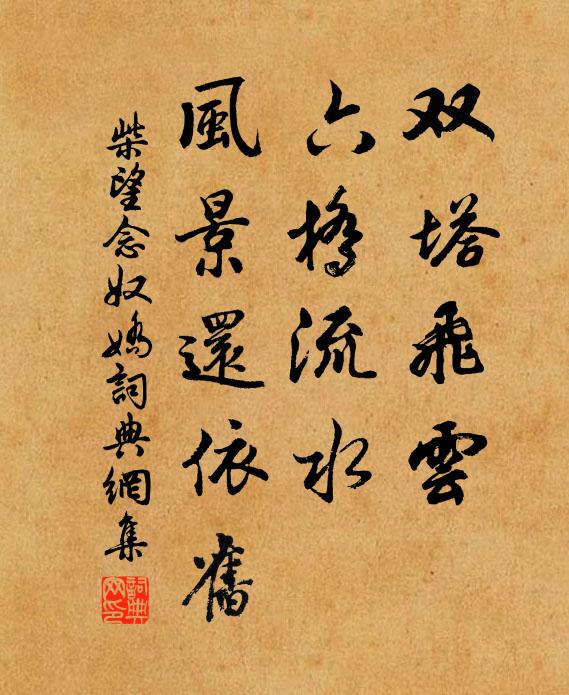 双塔飛雲
六橋流水
風景還依舊
柴望念奴嬌詞典網集
詞典网印